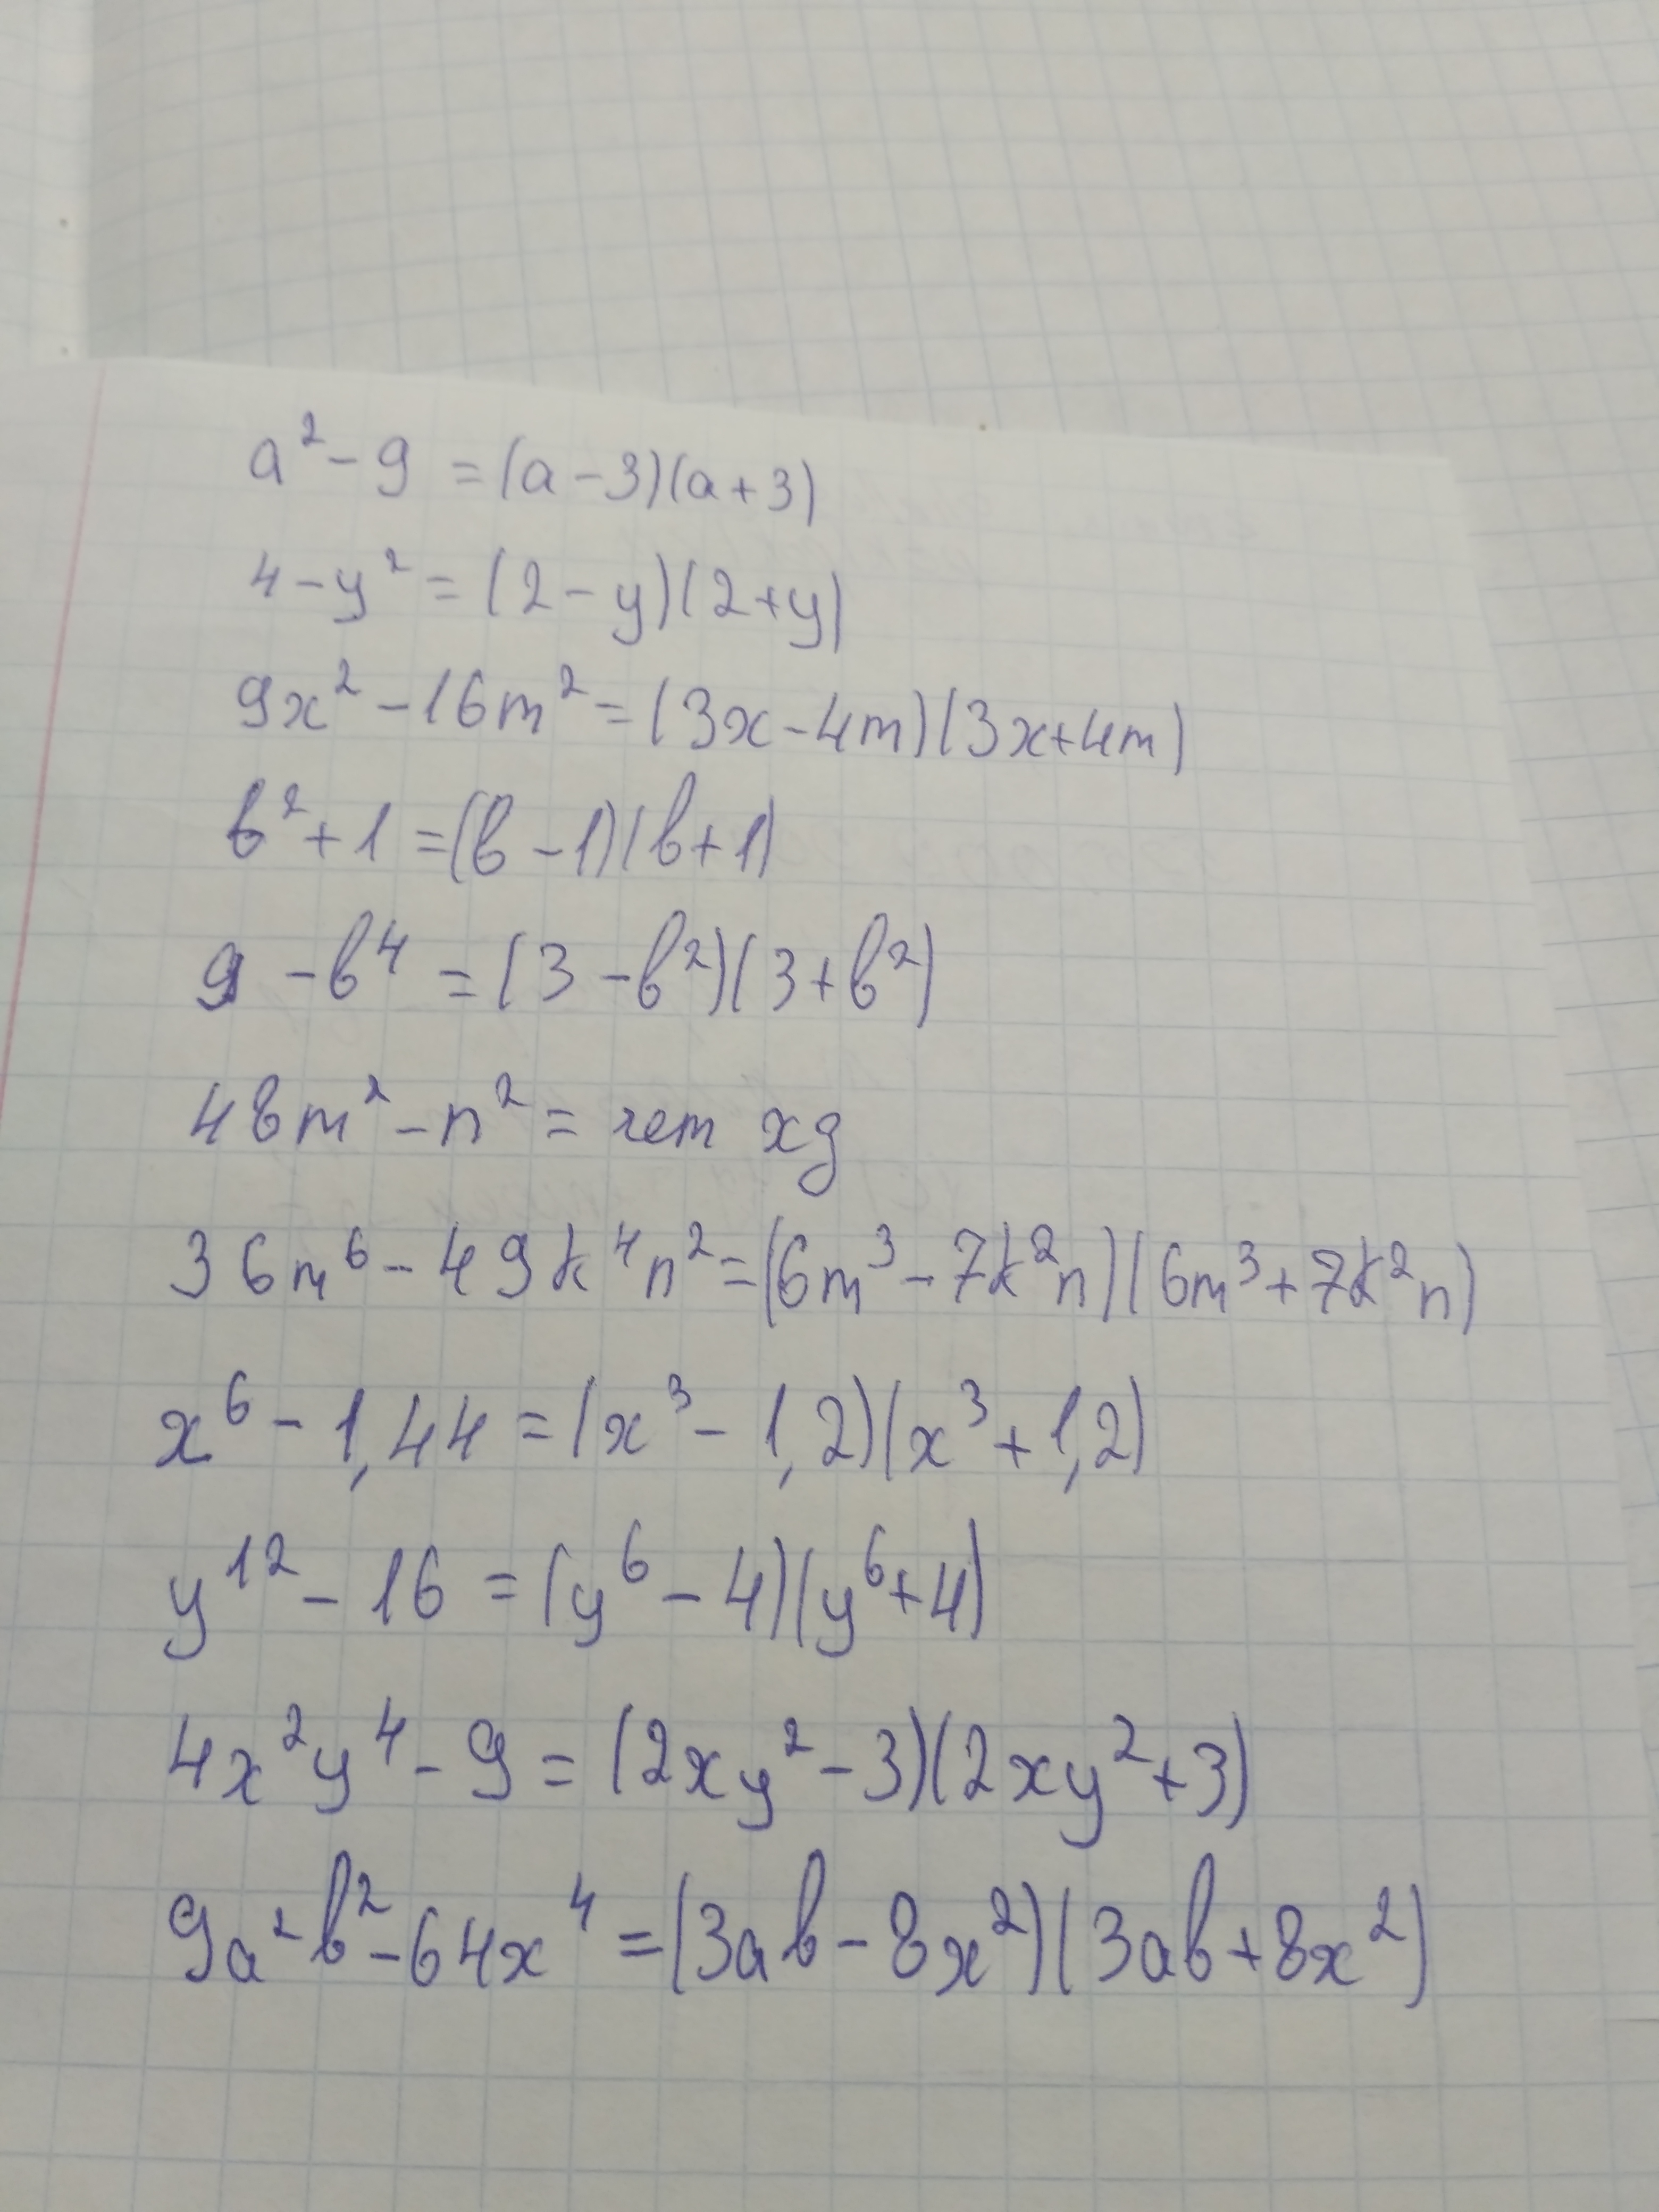 a² - 9 = (a - 3)(a + 3)
4 - y² = (2 - y)(2 + y)
9x² - 16m² = (3x - 4m)(3x + 4m)
b² + 1 = (b - 1)(b + 1)
9 - b⁴ = (3 - b²)(3 + b²)
48m² - n² = чет хд
36m⁶ - 49k⁴n² = (6m³ - 7k²n)(6m³ + 7k²n)
x⁶ - 1,44 = (x³ - 1,2)(x³ + 1,2)
y¹² - 16 = (y⁶ - 4)(y⁶ + 4)
4x²y⁴ - 9 = (2xy² - 3)(2xy² + 3)
9a²b² - 64x⁴ = (3ab - 8x²)(3ab + 8x²)